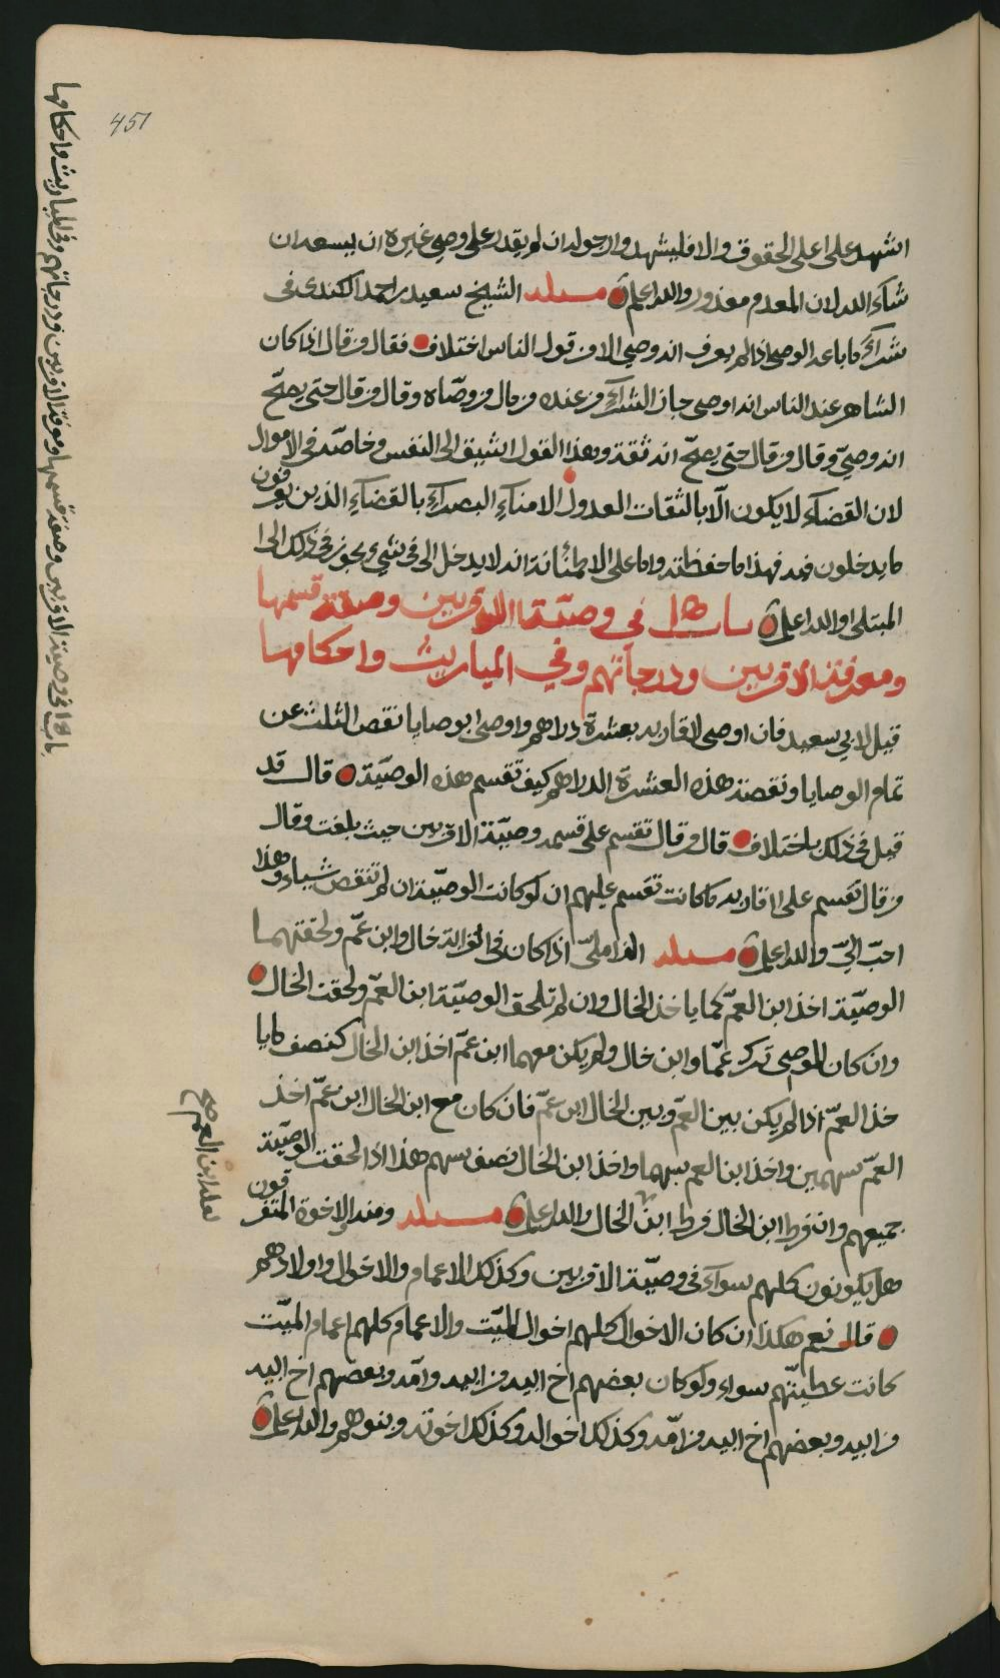 451
اشهد على اعلى الحقوق والا فليشهد وارجو له ان لم يقدر على وصي غيره ان يسعه ان
شاء الله لان المعدوم معذور والله اعلم مسئلة الشيخ سعيد بن احمد الكندي في
شراء ما باعه الوصي اذا لم يعرف انه وصي الا من قول الناس اختلاف فقال من قال اذا كان
الشاهر عند الناس انه اوصى جاز الشراء من عنده ومال من وصّاه وقال من قال حتى يصحّ
انه وصيّ وقال من قال حتى يصحّ انه ثقة وهذا القول اشيق الى النفس وخاصّة في الاموال
لان القضاء لا يكون الّا بالثقات العدول الامناء البصراء بالقضاء الذين يعرفون
ما يدخلون فيه فهذا ما حفظته واما على الاطمئنانة انه لا يدخل الى في شيء يجوز في ذلك الى
المبتلى والله اعلم باب في وصيّة الاقربين وصفة قسمها
ومعرفة الاقربين ودرجاتهم وفي المياريث واحكامها
قيل لابي سعيد فان اوصى لاقاربه بعشرة دراهم واوصى بوصايا نقص الثلث عن
تمام الوصايا ونقصت هذه العشرة الدراهم كيف تقسم هذه الوصيّة قال قد
قيل في ذلك باختلاف قال من قال تقسم على قسمه وصيّة الاقربين حيث بلغت وقال
من قال تقسم على اقاربه ما كانت تقسم عليهم ان لو كانت الوصيّة ان لم تنقص شياء وهذا
احبّ اليّ والله اعلم مسئلة الغاملىّ اذا كان في الورثة خال وابن عمّ ولحقتهما
الوصيّة اخذ ابن العمّ كما ياخذ الخال وان لم تلحق الوصيّة ابن العمّ ولحقت الخال
وان كان الموصي ترك عمّا وابن خال ولم يكن معهما ابن عمّ اخذ ابن الخال كنصف ما يا
خذ العمّ اذا لم يكن بين العمّ وبين الخال ابن عمّ فان كان مع ابن الخال ابن عمّ اخذ
العمّ سهمين واخذ ابن العم سهما واخذ ابن الخال نصف سهم هذا اذا لحقت الوصيّة
جميعهم وان فرط ابن الخال فرط ابن الخال والله اعلم مسئلة ومنه والاخوة المتفرقون
هل يكونون كلهم سواء في وصيّة الاقربين وكذلك الاعمام والاخوال واولادهم
قال نعم هكذا ان كان الاخوال كلهم اخوال الميّت والاعمام كلهم اعمام الميّت
كانت عطيتهم سواء ولو كان بعضهم اخ ابيه من ابيه وامّه وبعضهم اخ ابيه
من ابيه وبعضهم اخ ابيه من امّه وكذلك اخواله وكذلك اخوته وبنوهم والله اعلم
لعله ابن العم صح
باب في وصية الاقربين وصفة قسمها ومعرفة الاقربين ودرجاتهم وفي المياريث واحكامها